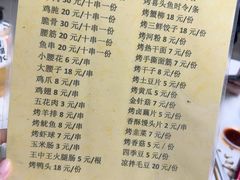 鸡脆 20元/十串一份
脆骨 30元/十串一份
腰筋 20元/十串一份
鱼串 20元/十串一份
小腰花 6元/串
大腰子 18元/串
鸡爪 5元/串
鸡翅 5元/串
五花肉 3元/串
烤羊排 8元/串
烤鱿鱼 8元/串
烤虾球 7元/串
玉米肠 3元/串
王中王火腿肠 5元/根
烤鸭头 18元/份
烤喜头鱼时令/条
烤蟹柳 18元/份
烤三鲜饺子 18元/份
烤河粉 8元/份
烤热干面 7元/份
烤手撕面筋 7元/份
烤干子 8元/份
烤土豆片 5元/份
烤黄瓜 5元/份
金针菇 7元/份
烤卤藕片 5元/份
香酥馒头片 2元/串
烤韭菜 7元/份
烤香菇 5元/份
四季豆 5元/份
凉拌毛豆 20元/份